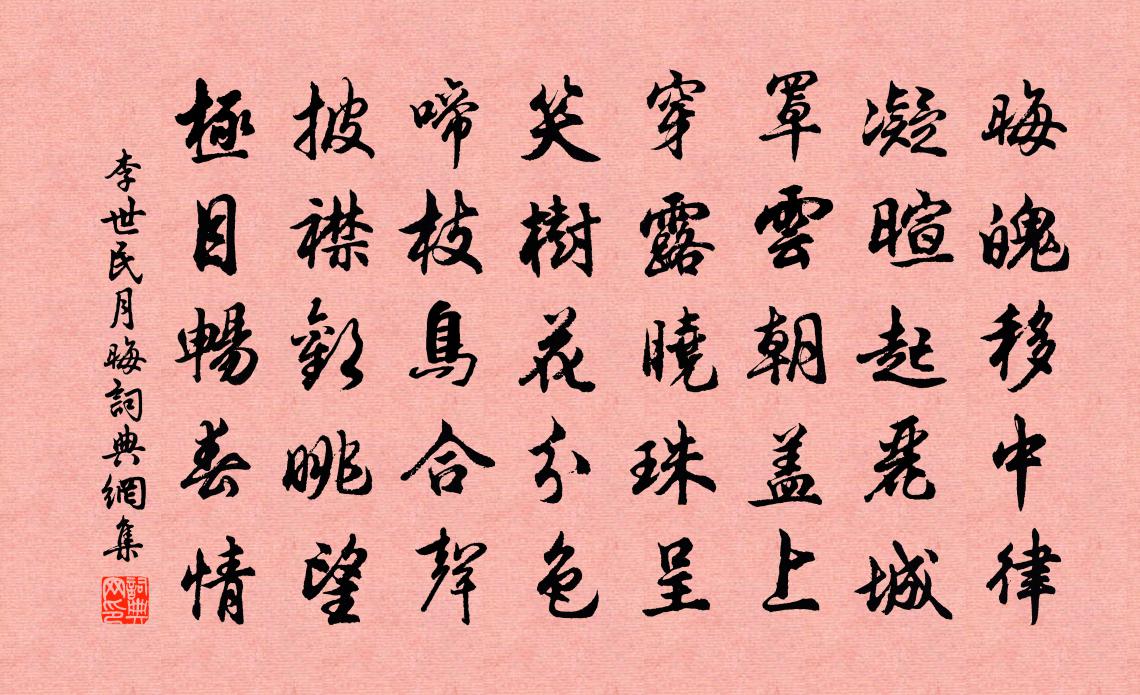 晦魄移中律
凝暄起麗城
罩雲朝盖上
穿露曉珠呈
笑樹花分色
啼枝鳥合聲
披襟歡眺望
極目暢春情
李世民月晦詞典網集
詞典网印